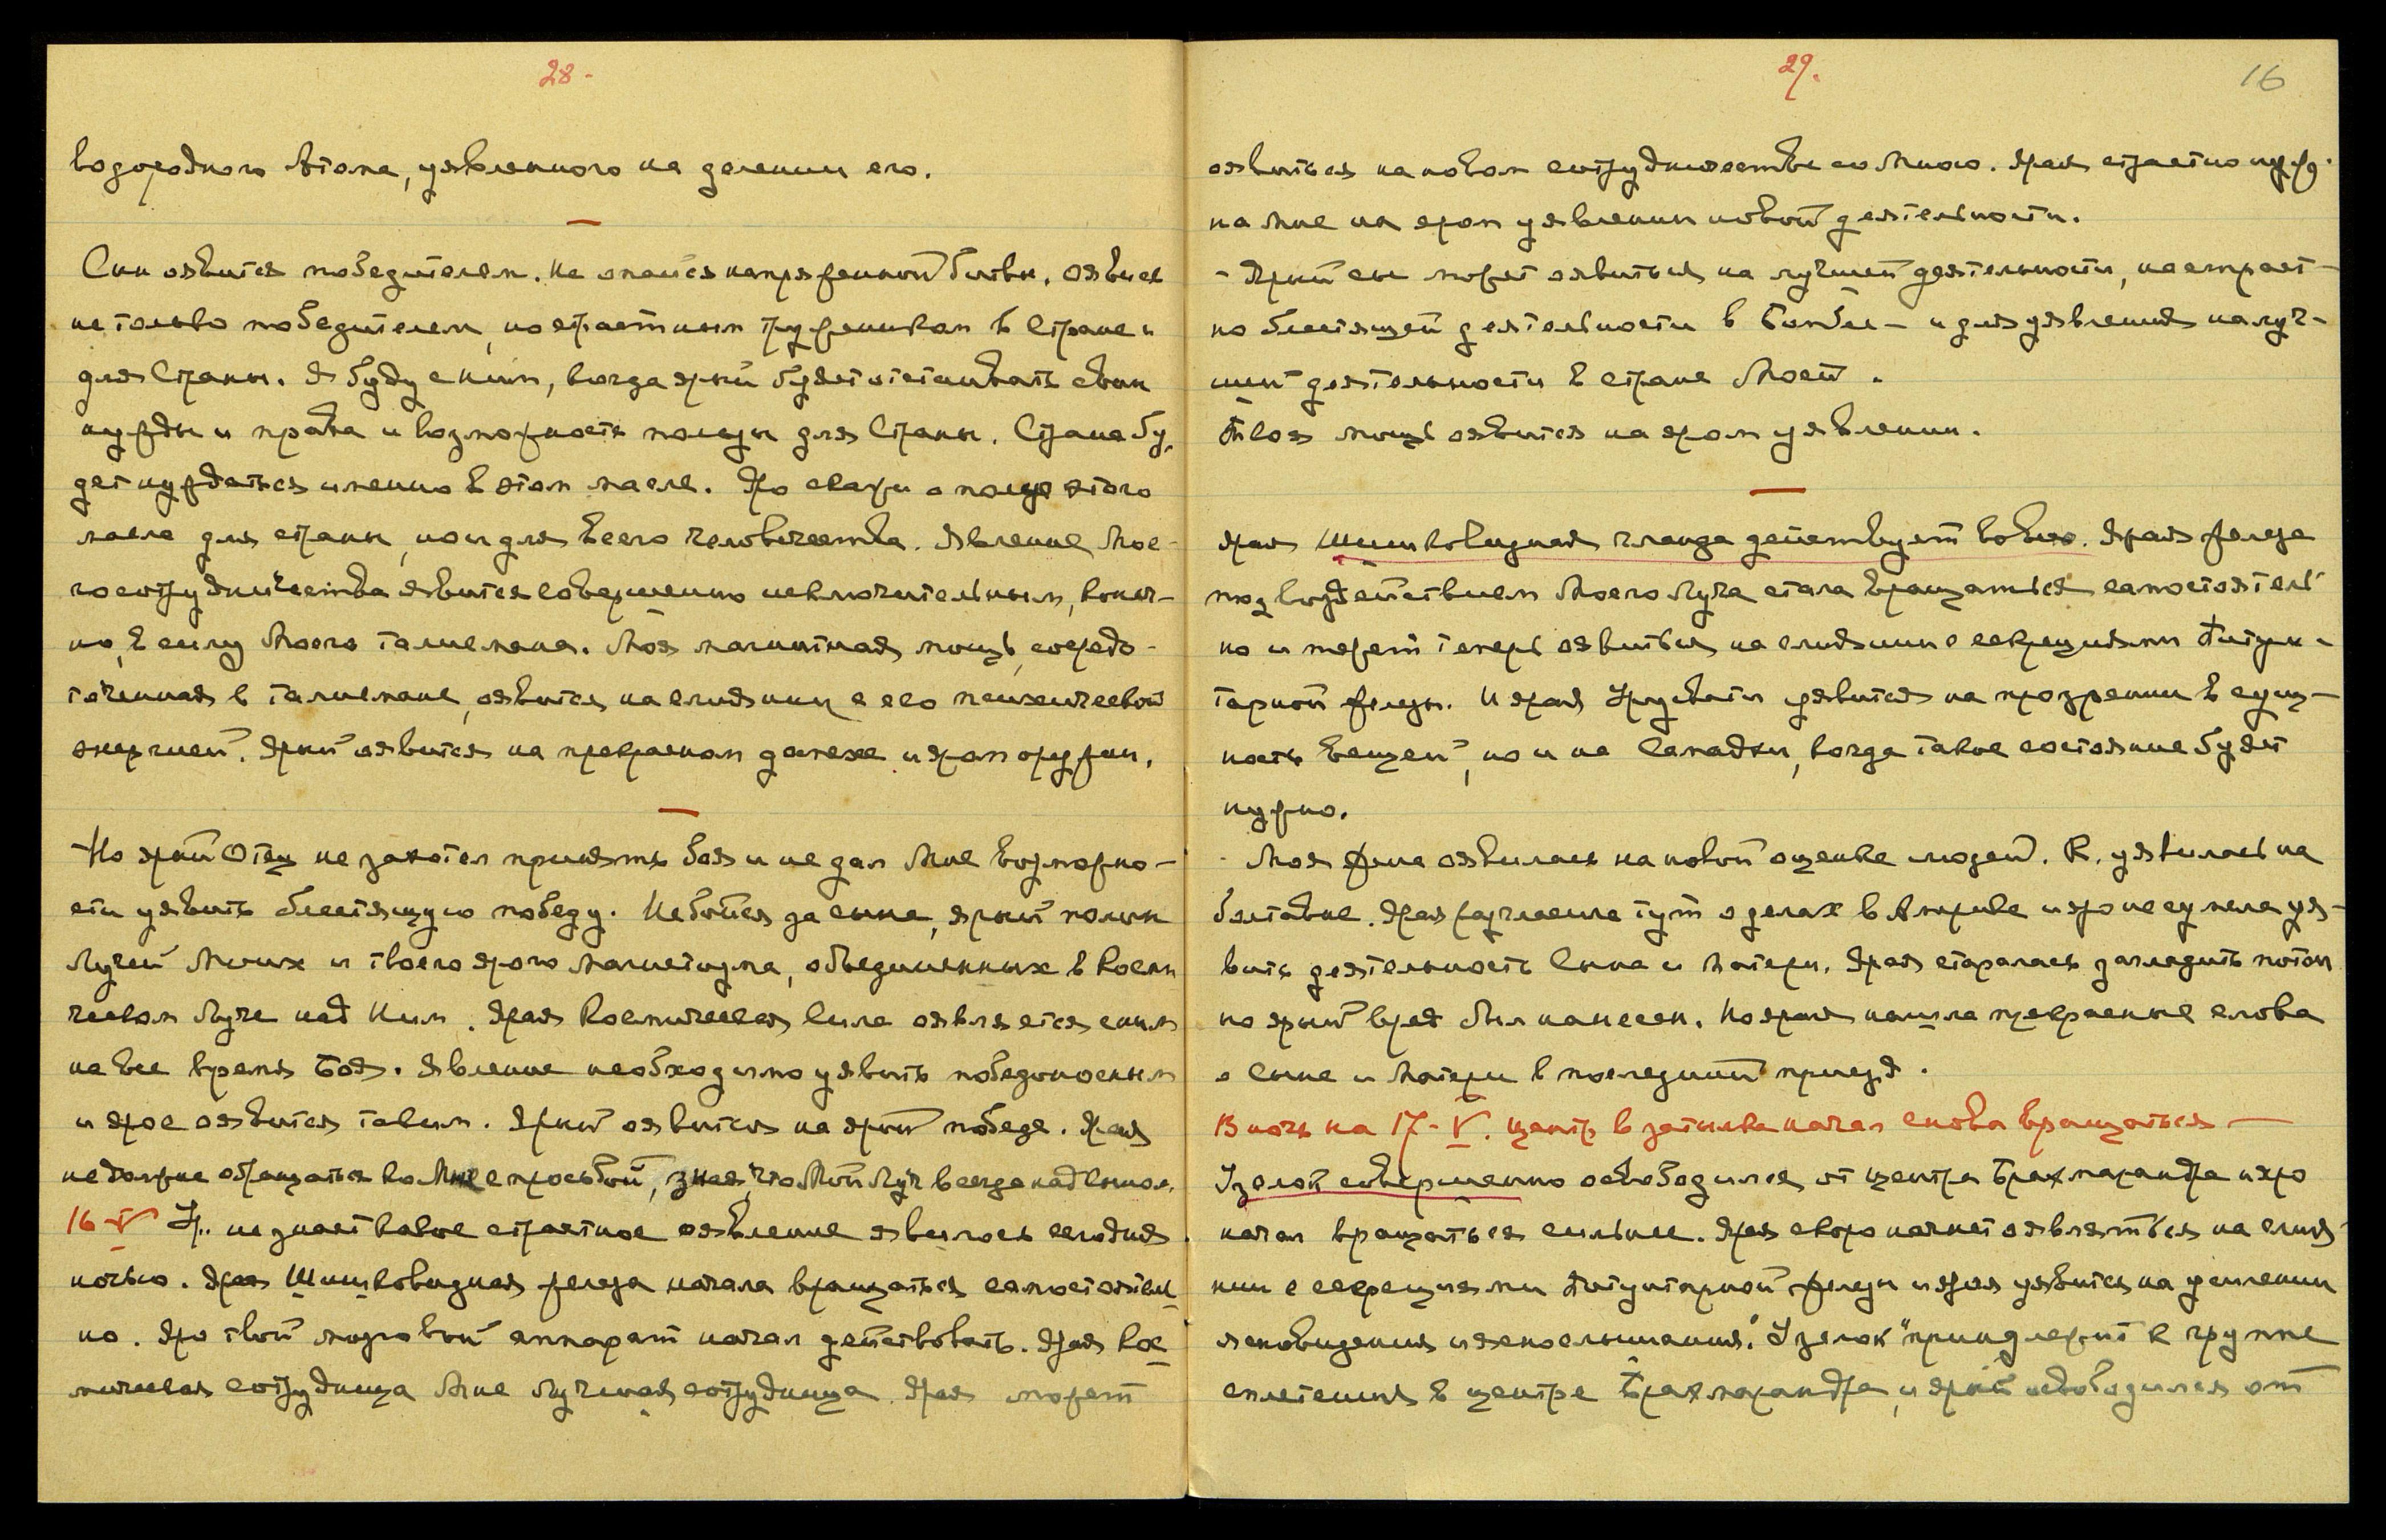 28-
водородного Атома, уявленного на делении его.
Сын оявится победителем. Не опайся напряженной битвы. Оявися
не только победителем, но страстным тружеником в Стране и
для Страны. Я буду с ним, когда ярый будет отстаивать свои
нужды и права и возможность пользы для Страны. Страна бу-
дет нуждаться именно в этом масле. Яро скажи о пользе этого
масла для страны, но и для всего человечества. Явление Мое-
го сотрудничества явится совершенно исключительным, конеч-
но, в силу Моего талисмана. Моя магнитная мощь, сосредо-
точенная в талисмане, оявится на слиянии с его психической
энергией. Ярый оявится на прекрасном доспехе и яром оружии.
Но ярый Отец не захотел принять боя и не дал Мне возможно-
сти уявить блестящую победу. Не бойся за сына, ярый полон
Лучей Моих и твоего ярого магнетизма, объединенных в Косми
ческом Луче над Ним. Ярая Космическая Сила оявляется с ним
на все время Боя. Явление необходимо уявить победоносным
и ярое оявится таким. Ярый оявится на ярой победе. Ярая
не должна обращаться ко Мне с просьбой, зная, что Мой Луч всегда над Сыном.
16-V У. не знает какое страстное оявление явилось сегодня
ночью. Ярая Шишковидная железа начала вращаться самостоятель
но. Яро твой мозговой аппарат начал действовать. Ярая Кос
мическая сотрудница Мне лучшая сотрудница. Ярая может
29. 16
оявиться на новом сотрудничестве со Мною. Ярая страстно нужд.
на Мне на яром уявлении новой деятельности.
- Ярый сын может оявиться на лучшей деятельности, на страст-
но блестящей деятельности в Бомбее - и для уявления на луч-
шей деятельности в стране Моей.
Твоя мощь оявится на яром уявлении.
Ярая Шишковидная гланда действует вовсю. Ярая железа
под воздействием Моего Луча стала вращаться самостоятель
но и может теперь оявиться на слиянии с секрециями Питуи-
тарной железы. И ярая Урусвати уявится на прозрении в сущ-
ность вещей, но и на Самадхи, когда такое состояние будет
нужно.
- Моя Жена оявилась на новой оценке людей. К. уявилась на
болтовне. Ярая разгласила тут о делах в Америке и яро не сумела уя-
вить деятельность Сына и Матери. Ярая старалась загладить потом
но ярый вред был нанесен. Но ярая нашла прекрасные слова
о Сыне и Матери в последний приезд.
В ночь на 17-V. центр в затылке начал снова вращаться —
Узелок совершенно освободился от центра Брахмарандра и яро
начал вращаться сильнее. Ярая скоро начнет оявляться на слия
нии с секрециями Питуитарной железы и ярая уявится на усилении
ясновидения и яснослышания. "Узелок" принадлежит к группе
сплетения в центре Брахмарандра, и ярый освободился от